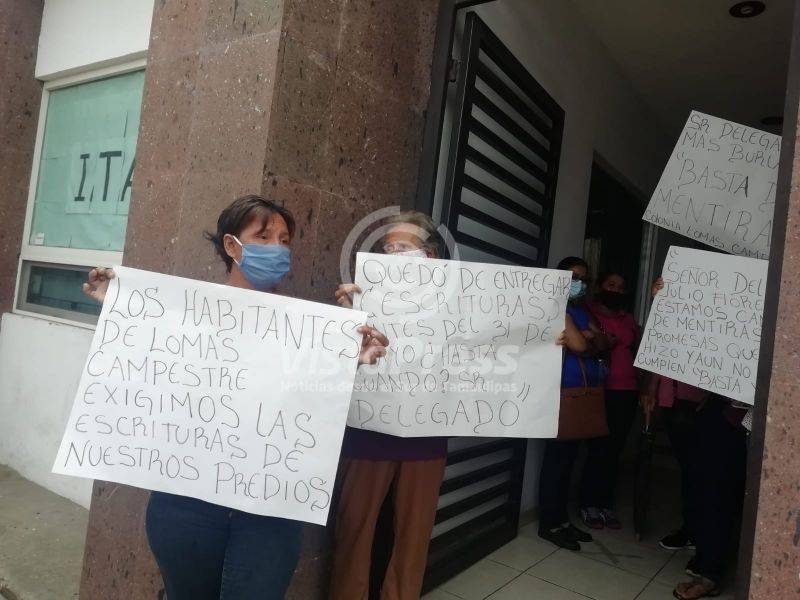 I.T.A
LOS HABITANTES
DE LOMAS
CAMPESTRE
EXIGIMOS LAS
ESCRITURAS DE
NUESTROS PREDIOS
QUEDÓ DE ENTREGAR
(ESCRITURAS)
ANTES DEL 31 DE
DELEGADO"
SR. DELEGA
MAS BURL
"BASTA D
MENTIRA
COLONIA LOMAS CAMPE
SEÑOR DEL
JULIO FLORE
ESTAMOS CA
DE MENTIRAS
PROMESAS QUE
HIZO Y AUN NO
CUMPLEN "BASTA Y
VistaPress
Noticias desde Tamaulipas